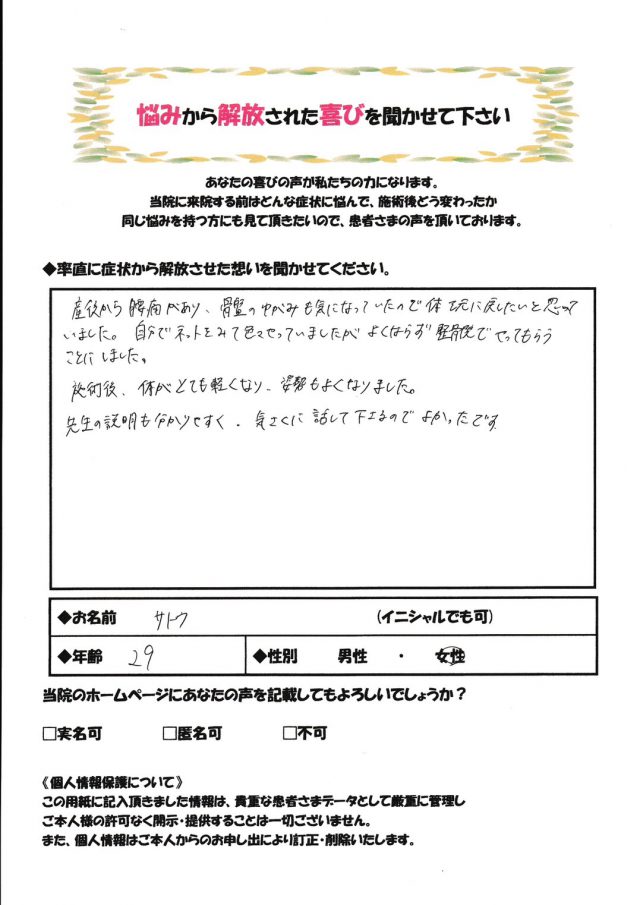 悩みから解放された喜びを聞かせて下さい
あなたの喜びの声が私たちの力になります。
当院に来院する前はどんな症状に悩んで、施術後どう変わったか
同じ悩みを持つ方にも見て頂きたいので、患者さまの声を頂いております。
◆率直に症状から解放させた想いを聞かせてください。
産後から腰痛があり、骨盤のゆがみも気になっていたので体を元に戻したいと思って
いました。自分でネットをみて色々やっていましたがよくならず整骨院でやってもらう
ことにしました。
施術後、体がとても軽くなり、姿勢もよくなりました。
先生の説明も分かりやすく、気さくに話して下さるのでよかったです
◆お名前 サトウ (イニシャルでも可)
◆年齢 29 ◆性別 男性 ・ 女性
当院のホームページにあなたの声を記載してもよろしいでしょうか？
□実名可 □匿名可 □不可
《個人情報保護について》
この用紙に記入頂きました情報は、貴重な患者さまデータとして厳重に管理し
ご本人様の許可なく開示・提供することは一切ございません。
また、個人情報はご本人からのお申し出により訂正・削除いたします。